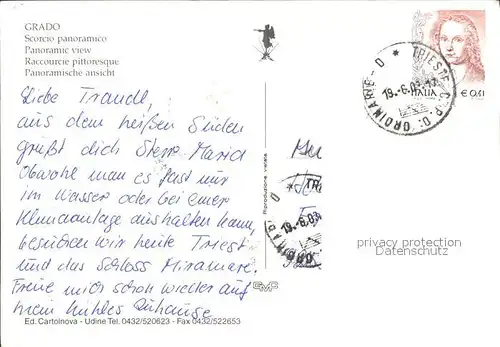 GRADO
Scorcio panoramico
Panoramic view
Raccourcie pittoresque
Panoramische ansicht
Liebe Traudl,
aus dem heißen Süden
grüßt dich Maria
Obwohl man es fast nur
im Wasser oder bei einer
Klimaanlage aushalten kann,
besuchen wir heute Triest
und das Schloss Miramare.
Freue mich schon wieder auf
mein kühles Zuhause
Ed. Cartolnova - Udine Tel. 0432/520623 - Fax 0432/522653
Riproduzione vietata
ITALIA
€ 0,41
TRIESTE C.P.O. ORDINARIE - D *
19.-6.03
19.-6.03
privacy protection
Datenschutz